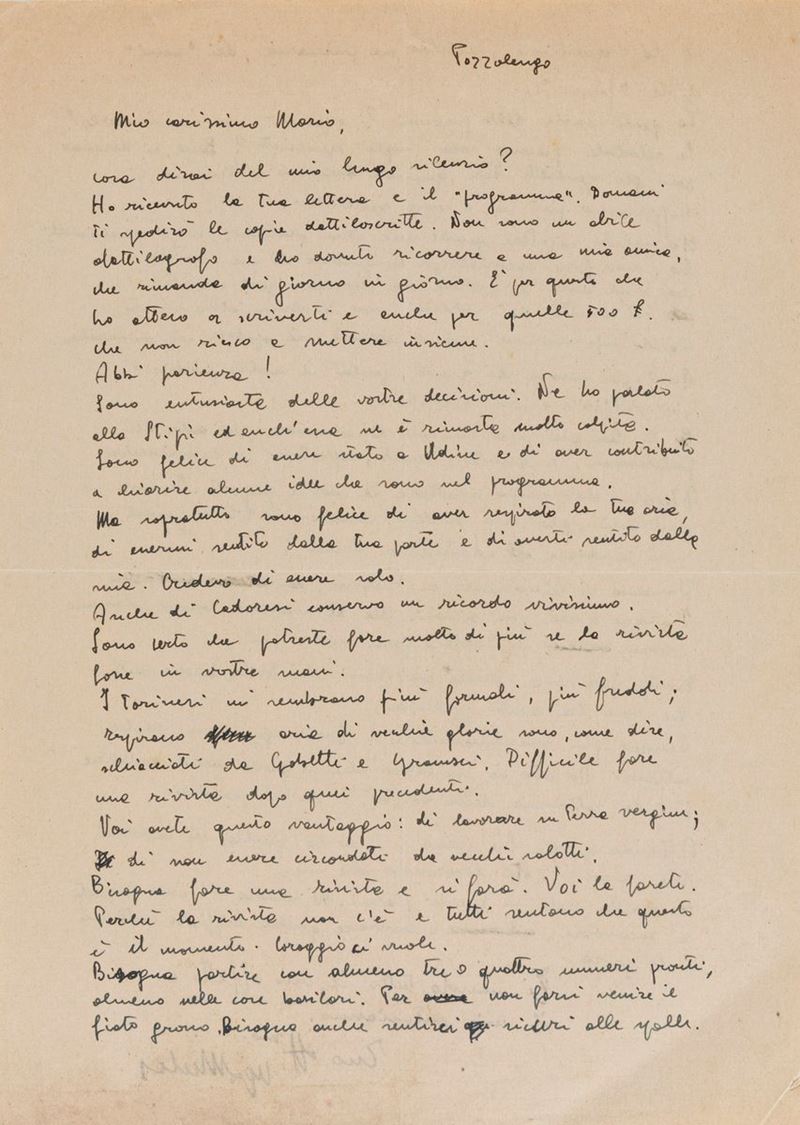 Pozzolengo
Mio carissimo Mario,
cosa dirai del mio lungo silenzio?
Ho ricevuto la tua lettera e il "programma". Domani
ti spedirò le copie dattiloscritte. Non sono un abile
dattilografo e ho dovuto ricorrere a una mia amica,
che rimanda di giorno in giorno. È per questo che
ho atteso a scriverti e anche per quelle 500 £.
che non riesco a mettere insieme.
Abbi pazienza!
Sono entusiasta delle vostre decisioni. Ne ho parlato
alla Stipi ed anch'essa ne è rimasta molto colpita.
Sono felice di essere stato a Udine e di aver contribuito
a chiarire alcune idee che sono nel programma.
Ma sopratutto sono felice di aver respirato la tua aria,
di essermi sentito dalla tua parte e di averti sentito dalla
mia. Credevo di essere solo.
Anche di Cadoresi conservo un ricordo vivissimo.
Sono certo che potreste fare molto di più se la rivista
fosse in vostre mani.
I Torinesi mi sembrano più formali, più freddi;
respirano aria di vecchie glorie sono, come dire,
schiacciati da Gobetti e Gramsci. Difficile fare
una rivista dopo quei precedenti.
Voi avete questo vantaggio: di lavorare su terra vergine;
di non essere circondati da vecchi salotti.
Bisogna fare una rivista e si farà. Voi la farete.
Perché la rivista non c'è e tutti sentono che questo
è il momento. Coraggio ci vuole.
Bisogna partire con almeno tre o quattro numeri pronti,
almeno nelle cose basilari. Per non farsi venire il
fiato grosso. Bisogna anche sentirci sicuri alle spalle.